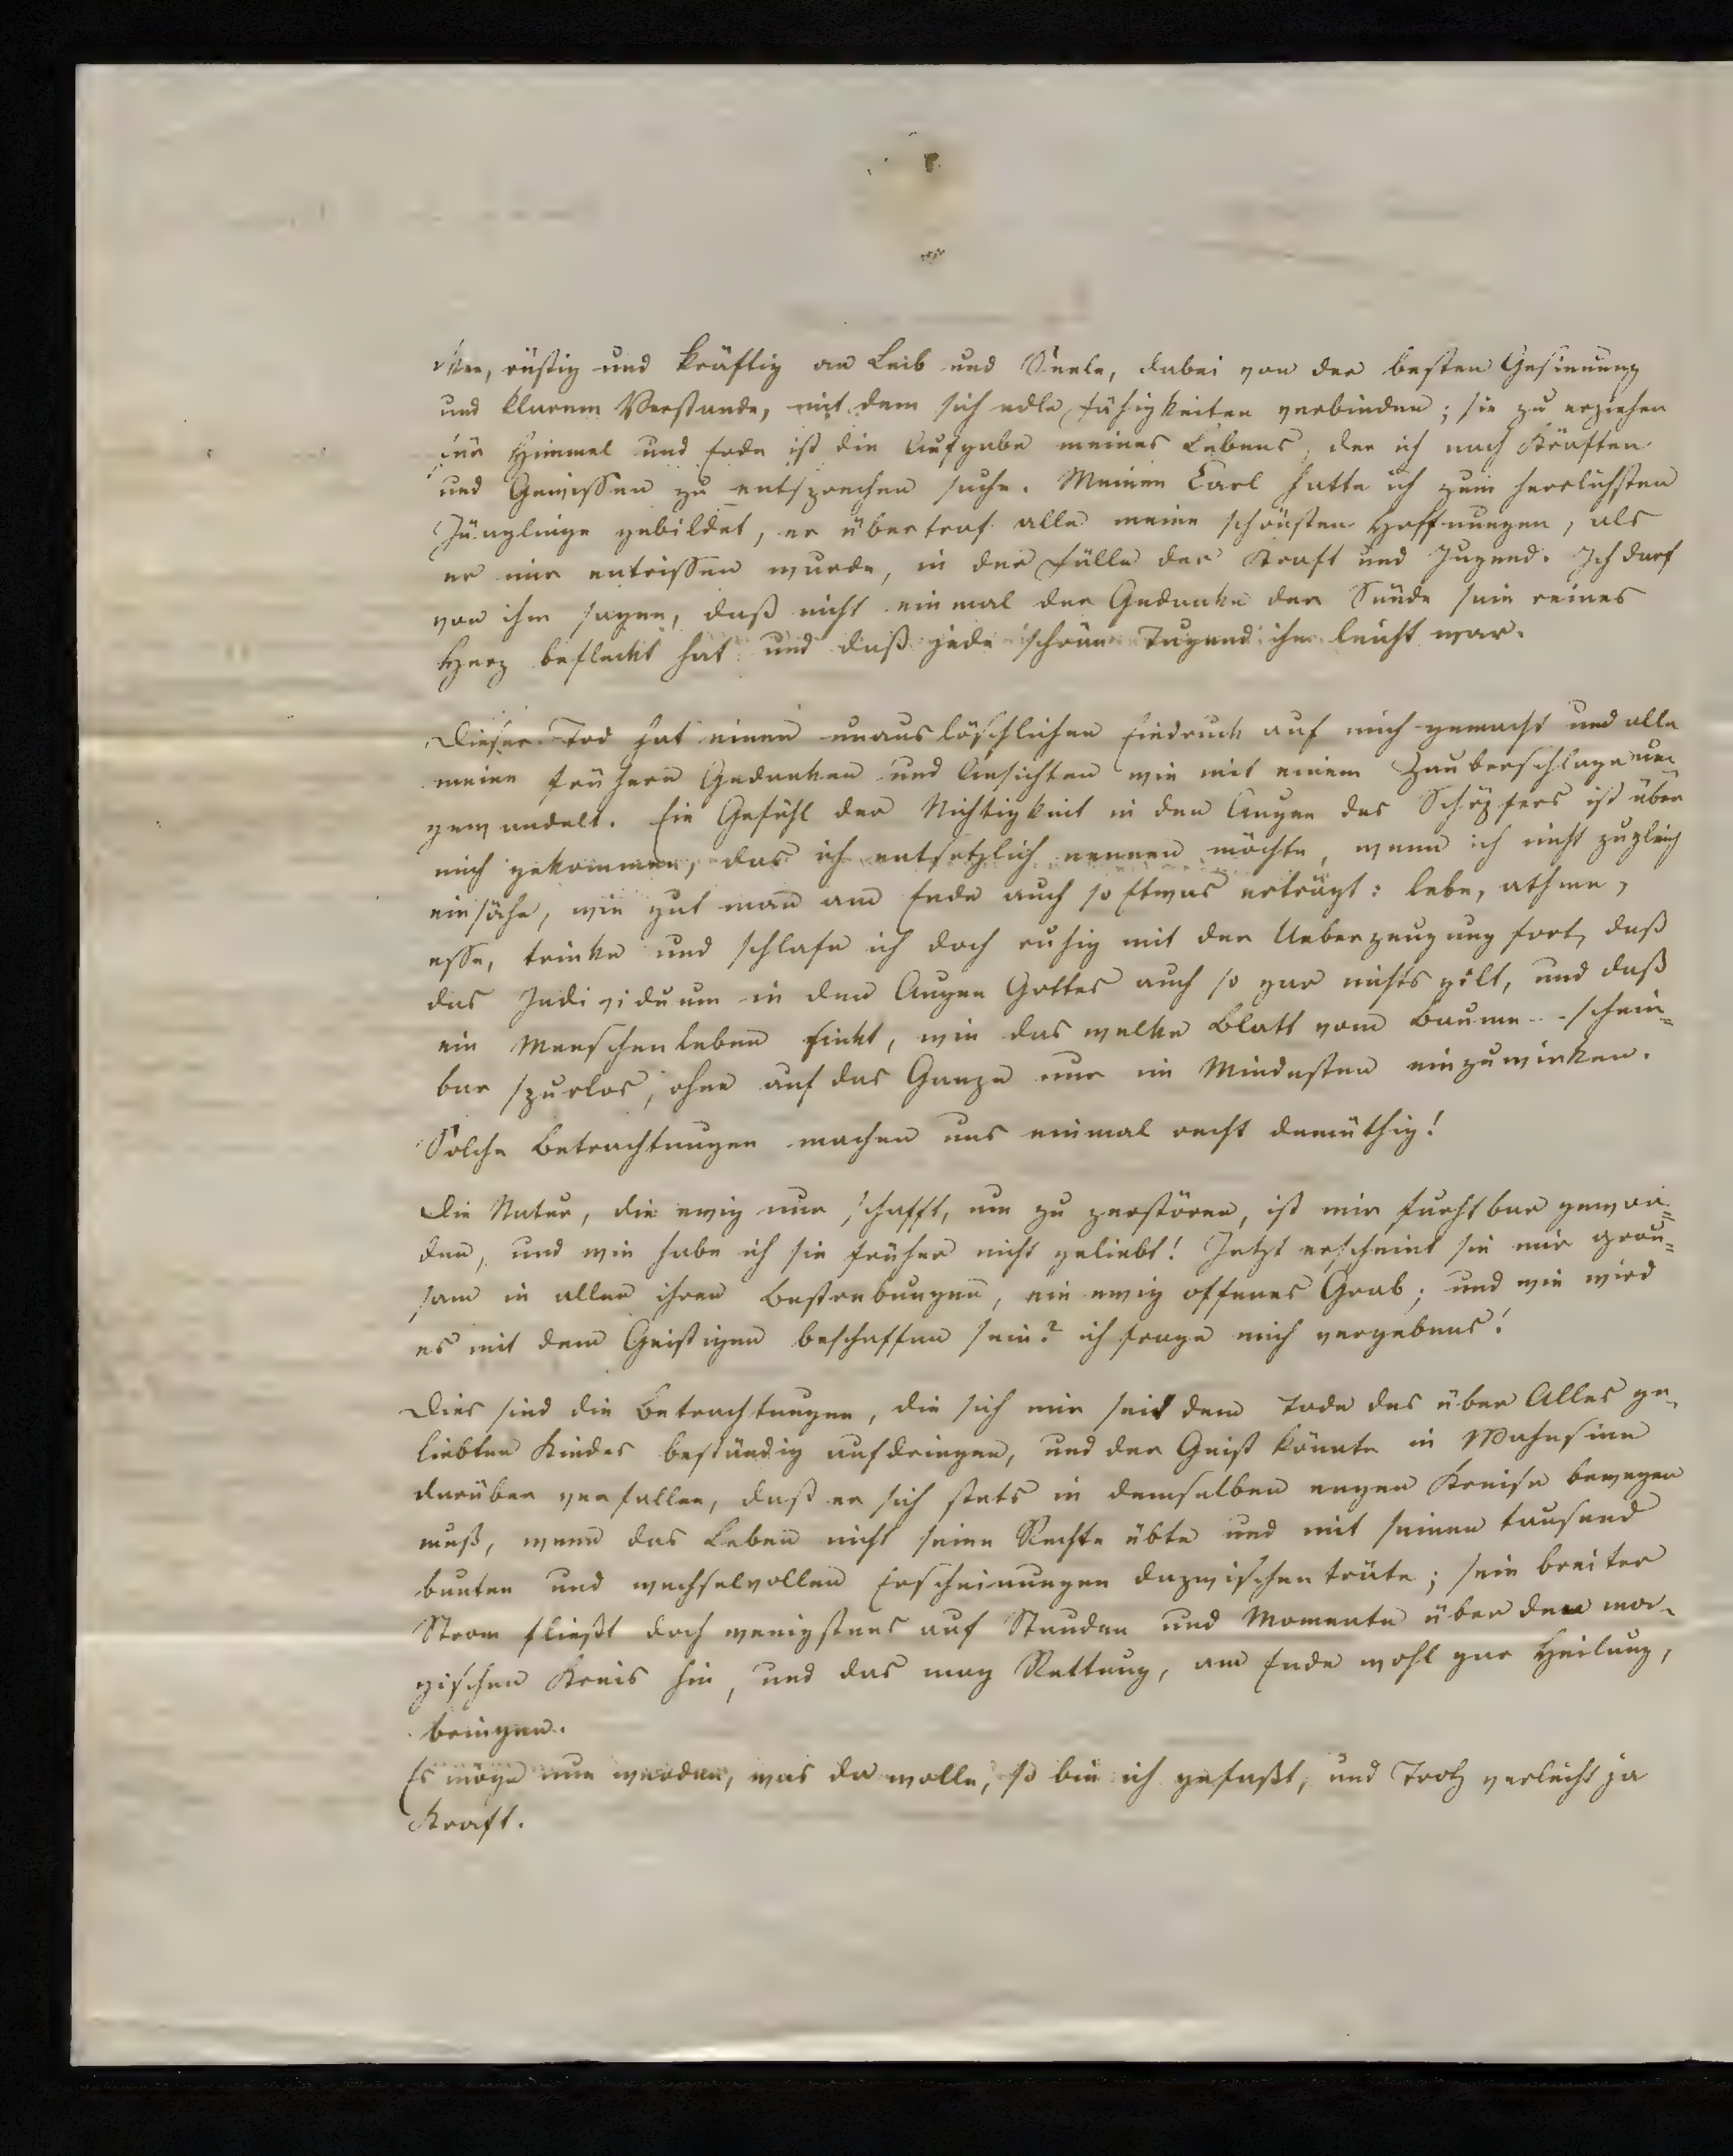 rüstig und kräftig an Leib und Seele, dabei von der besten Gesinnung
und klarem Verstande, mit dem sich edle Fähigkeiten verbinden; sie zu erziehen
für Himmel und Erde ist die Aufgabe meines Lebens, der ich nach Kräften
und Gewissen zu entsprechen suche. Meinen Carl hatte ich zum herrlichsten
Jünglinge gebildet, er übertraf alle meine schönsten Hoffnungen, als
er mir entrissen wurde, in der Fülle der Kraft und Jugend. Ich darf
von ihm sagen, daß nicht einmal der Gedanke der Sünde sein reines
Herz befleckt hat und daß jede schöne Tugend ihm leicht war.
Dieser Tod hat einen unauslöschlichen Eindruck auf mich gemacht und alle
meine frühern Gedanken und Ansichten wie mit einem Zauberschlage um
gewandelt. Ein Gefühl der Nichtigkeit in den Augen des Schöpfers ist über
mich gekommen, das ich entsetzlich nennen möchte, wenn ich nicht zugleich
einsähe, wie gut man am Ende auch so Etwas erträgt: lebe, athme,
esse, trinke und schlafe ich doch ruhig mit der Ueberzeugung fort, daß
das Individuum in den Augen Gottes auch so gar nichts gilt, und daß
ein Menschenleben sinkt, wie das welke Blatt vom Baume - schein=
bar spurlos, ohne auf das Ganze nur im Mindesten einzuwirken.
Solche Betrachtungen machen uns einmal recht demüthig!
Die Natur, die ewig nur schafft, um zu zerstören, ist mir furchtbar gewor=
den, und wie habe ich sie früher nicht geliebt! Jetzt erscheint sie mir grau=
sam in allen ihren Bestrebungen, ein ewig offenes Grab; und wie wird
es mit dem Geistigen beschaffen sein? ich frage mich vergebens!
Dies sind die Betrachtungen, die sich mir seit dem Tode des über Alles ge-
liebten Kindes beständig aufdringen, und der Geist könnte in Wahnsinn
darüber verfallen, daß er sich stets in demselben engen Kreise bewegen
muß, wenn das Leben nicht seine Rechte übte und mit seinen tausend
bunten und wechselvollen Erscheinungen dazwischen träte; sein breiter
Strom fließt doch wenigstens auf Stunden und Momente über den ma-
gischen Kreis hin, und das mag Rettung, am Ende wohl gar Heilung,
bringen.
Es möge nun werden, was da wolle, so bin ich gefaßt, und Trotz verleiht ja
Kraft.